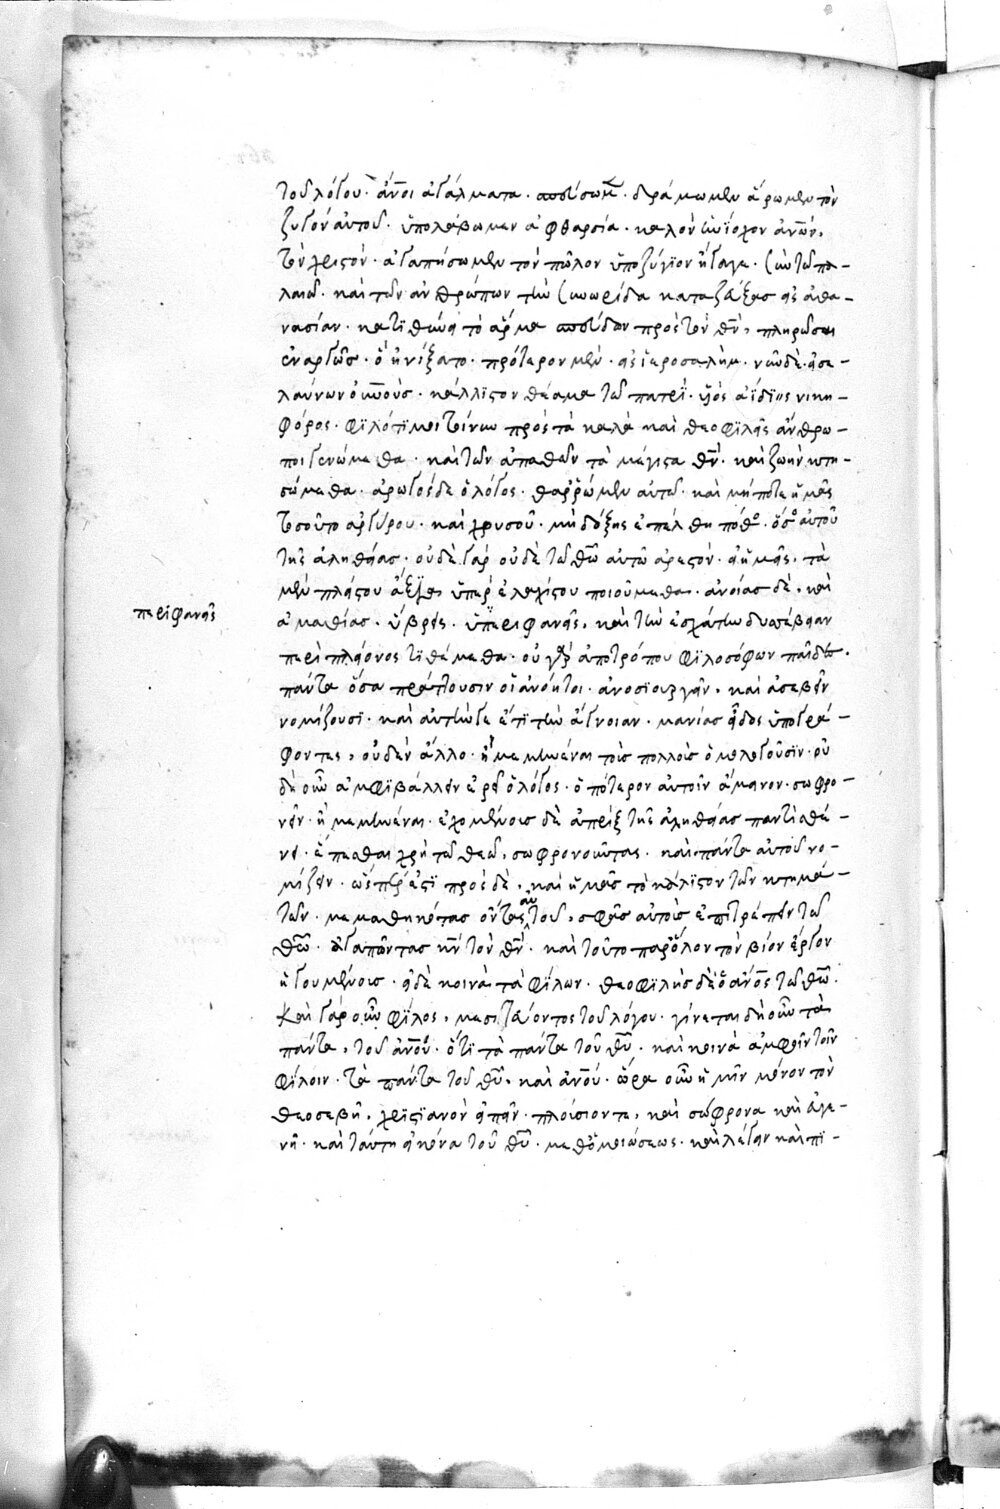 τοῦ λόγου· ἄνοι ἀγάλματα· σπεύσωμεν· δράμωμεν ἄρωμεν τὸν
ζυγὸν αὐτοῦ· ὑπολάβωμεν ἀφθαρσία· καλὸν ἡνίοχον ἀνων·
τὸν χριστὸν· ἀγαπήσωμεν τὸν πῶλον ὑποζύγιον ἤγαγε· σὺν τῷ πα-
λαιῷ· καὶ τῶν ἀνθρώπων τὴν συνωρίδα καταζεύξας εἰς ἀθα-
νασίαν· κατιθύνει τὸ ἅρμα σπεύδων πρὸς τὸν θν, πληρῶσαι
ἐναργῶς· ὃ ἠνίξατο· πρότερον μὲν· εἰς ἱεροσαλὴμ· νῦν δὲ εἰσε-
λαύνων οὐνοὺς· κάλλιστον θέαμα τῷ πατρὶ· υἱὸς ἀΐδιος νικη-
φόρος· φιλότιμοι τοίνυν πρὸς τὰ καλὰ καὶ θεοφιλεῖς ἄνθρω-
ποι γενώμεθα· καὶ τῶν ἀπαθῶν τὰ μέγιστα θν· καὶ ζωὴν κτη-
σώμεθα· ἀρωγὸς δὲ ὁ λόγος· θαρρῶμεν αὐτῷ· καὶ μήποτε ἡμᾶς
τοσοῦτο ἀργύρου· καὶ χρυσοῦ· μὴ δόξης ἐπέλθη πόθος· ὅσος αὐτοῦ
τῆς ἀληθείας· οὐδὲ γὰρ οὐδὲ τῷ θῶ αὐτῶ ἀρεστὸν· εἰ ἡμεῖς, τὰ
μὲν πλείστου ἄξια, ὑπὲρ ἐλαχίστου ποιούμεθα· ἀνοίας δὲ, καὶ
ἀμαθίας· ὕβρεις· ὑπεριφανεῖς, καὶ τὴν ἐσχάτην δυσσέβειαν
περιφανεῖς
περὶ πλείονος τιθέμεθα· οὐ γὰρ ἀποτρόπου φιλοσόφων παῖδες·
πάντα ὅσα πράττουσιν οἱ ἀνόητοι· ἀνοσιουργεῖν, καὶ ἀσεβεῖν
νομίζουσι· καὶ αὐτήν γε ἔτι τὴν ἄγνοιαν· μανίας εἶδος ὑπογρά-
φοντες, οὐδὲν ἄλλο· ἢ μεμηνέναι τοὺς πολλοὺς ὁμολογοῦσιν· οὐ
δὲ οὖν ἀμφιβάλλειν ἐρεῖ ὁ λόγος· ὁπότερον αὐτοῖν ἄμεινον· σωφρο-
νεῖν· ἢ μεμηνέναι· ἐχομένους δὲ ἀπρὶξ τῆς ἀληθείας παντὶ σθέ-
νει· ἕπεσθαι χρὴ τῷ θεῷ, σωφρονοῦντας· καὶ πάντα αὐτοῦ νο-
μίζειν· ὥσπερ ἐστὶ πρὸς δὲ, καὶ ἡμᾶς τὸ κάλλιστον τῶν κτημά-
των· μεμαθηκότας ὄντας αὐτοῦ, σφᾶς αὐτοὺς ἐπιτρέπειν τῷ
θῶ· ἀγαπῶντας κν τὸν θν· καὶ τοῦτο παρόλον τὸν βίον ἔργον
ἡγουμένους· εἰ δὲ κοινὰ τὰ φίλων· θεοφιλὴς δὲ ὁ ἄνος τῷ θῶ·
καὶ γὰρ οὖν φίλος, μεσιτεύοντος τοῦ λόγου· γίνεται δὴ οὖν τὰ
πάντα, τοῦ ἀνου· ὅτι τὰ πάντα τοῦ θυ· καὶ κοινὰ ἀμφοῖν τοῖν
φίλοιν· τὰ πάντα τοῦ θυ, καὶ ἀνου· ὥρα οὖν ἡμῖν μόνον τὸν
θεοσεβῆ, χριστιανὸν εἰπεῖν· πλούσιόν τε, καὶ σώφρονα καὶ εὐγε-
νῆ· καὶ ταύτη εἰκόνα τοῦ θυ· μεθομοιώσεως· καὶ λέγειν καὶ πι-